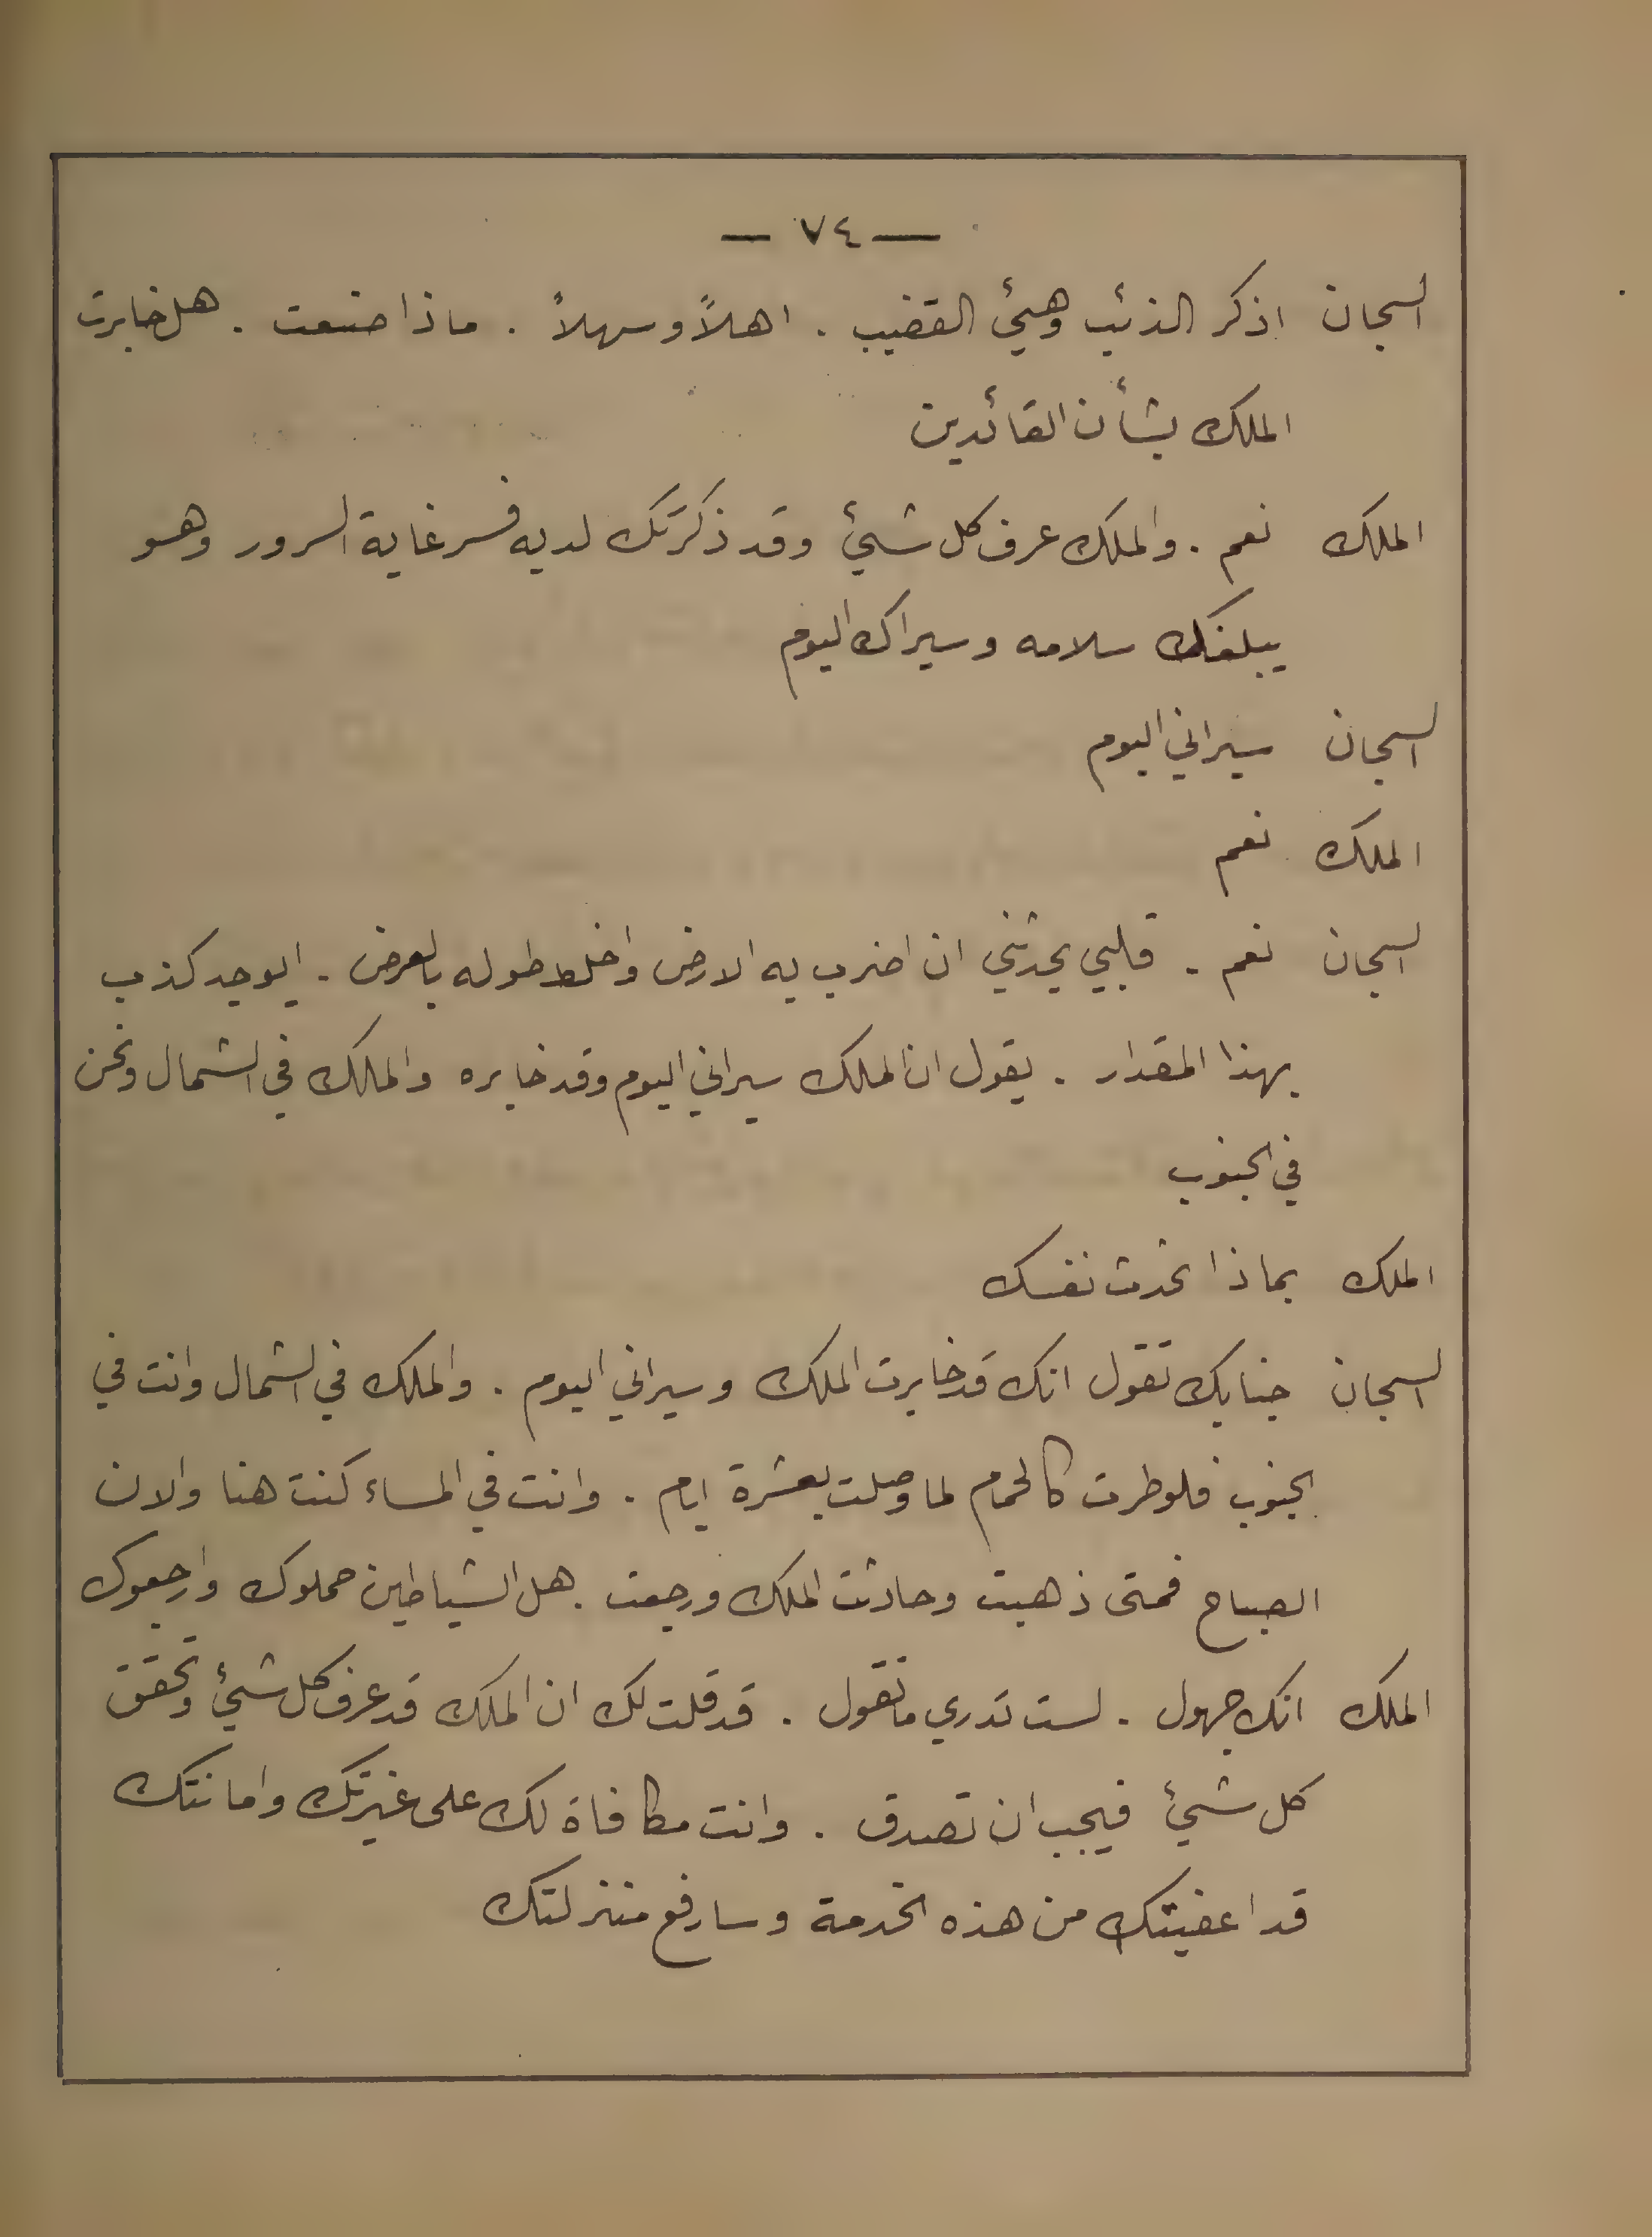 — ٧٤ —
السجان اذكر الذئب وهيئ القضيب . اهلاً وسهلاً . ماذا صنعت . هل خابرت
الملك بشأن القائدين
الملك نعم . والملك عرف كل شيئ وقد ذكرتك لديه فسر غاية السرور وهو
يبلغك سلامه وسيراك اليوم
السجان سيراني اليوم
الملك نعم
السجان نعم . قلبي يحدثني ان اضرب به الارض واخلط طوله بالعرض . ايوجد كذب
بهذا المقدار . يقول ان الملك سيراني اليوم وقد خابره والملك في الشمال ونحن
في الجنوب
الملك بماذا تحدث نفسك
السجان جنابك تقول انك قد خابرت الملك وسيراني اليوم . والملك في الشمال وانت في
الجنوب فلو طرت كالحمام لما وصلت بعشرة ايام . وانت في المساء كنت هنا والان
الصباح فمتى ذهبت وحادثت الملك ورجعت . هل الشياطين حملوك وارجعوك
الملك انك جهول . لست تدري ما تقول . قد قلت لك ان الملك قد عرف كل شيئ وتحقق
كل شيئ فيجب ان تصدق . وانت مكافاة لك على غيرتك وامانتك
قد اعفيتك من هذه الخدمة وسارفع منزلتك